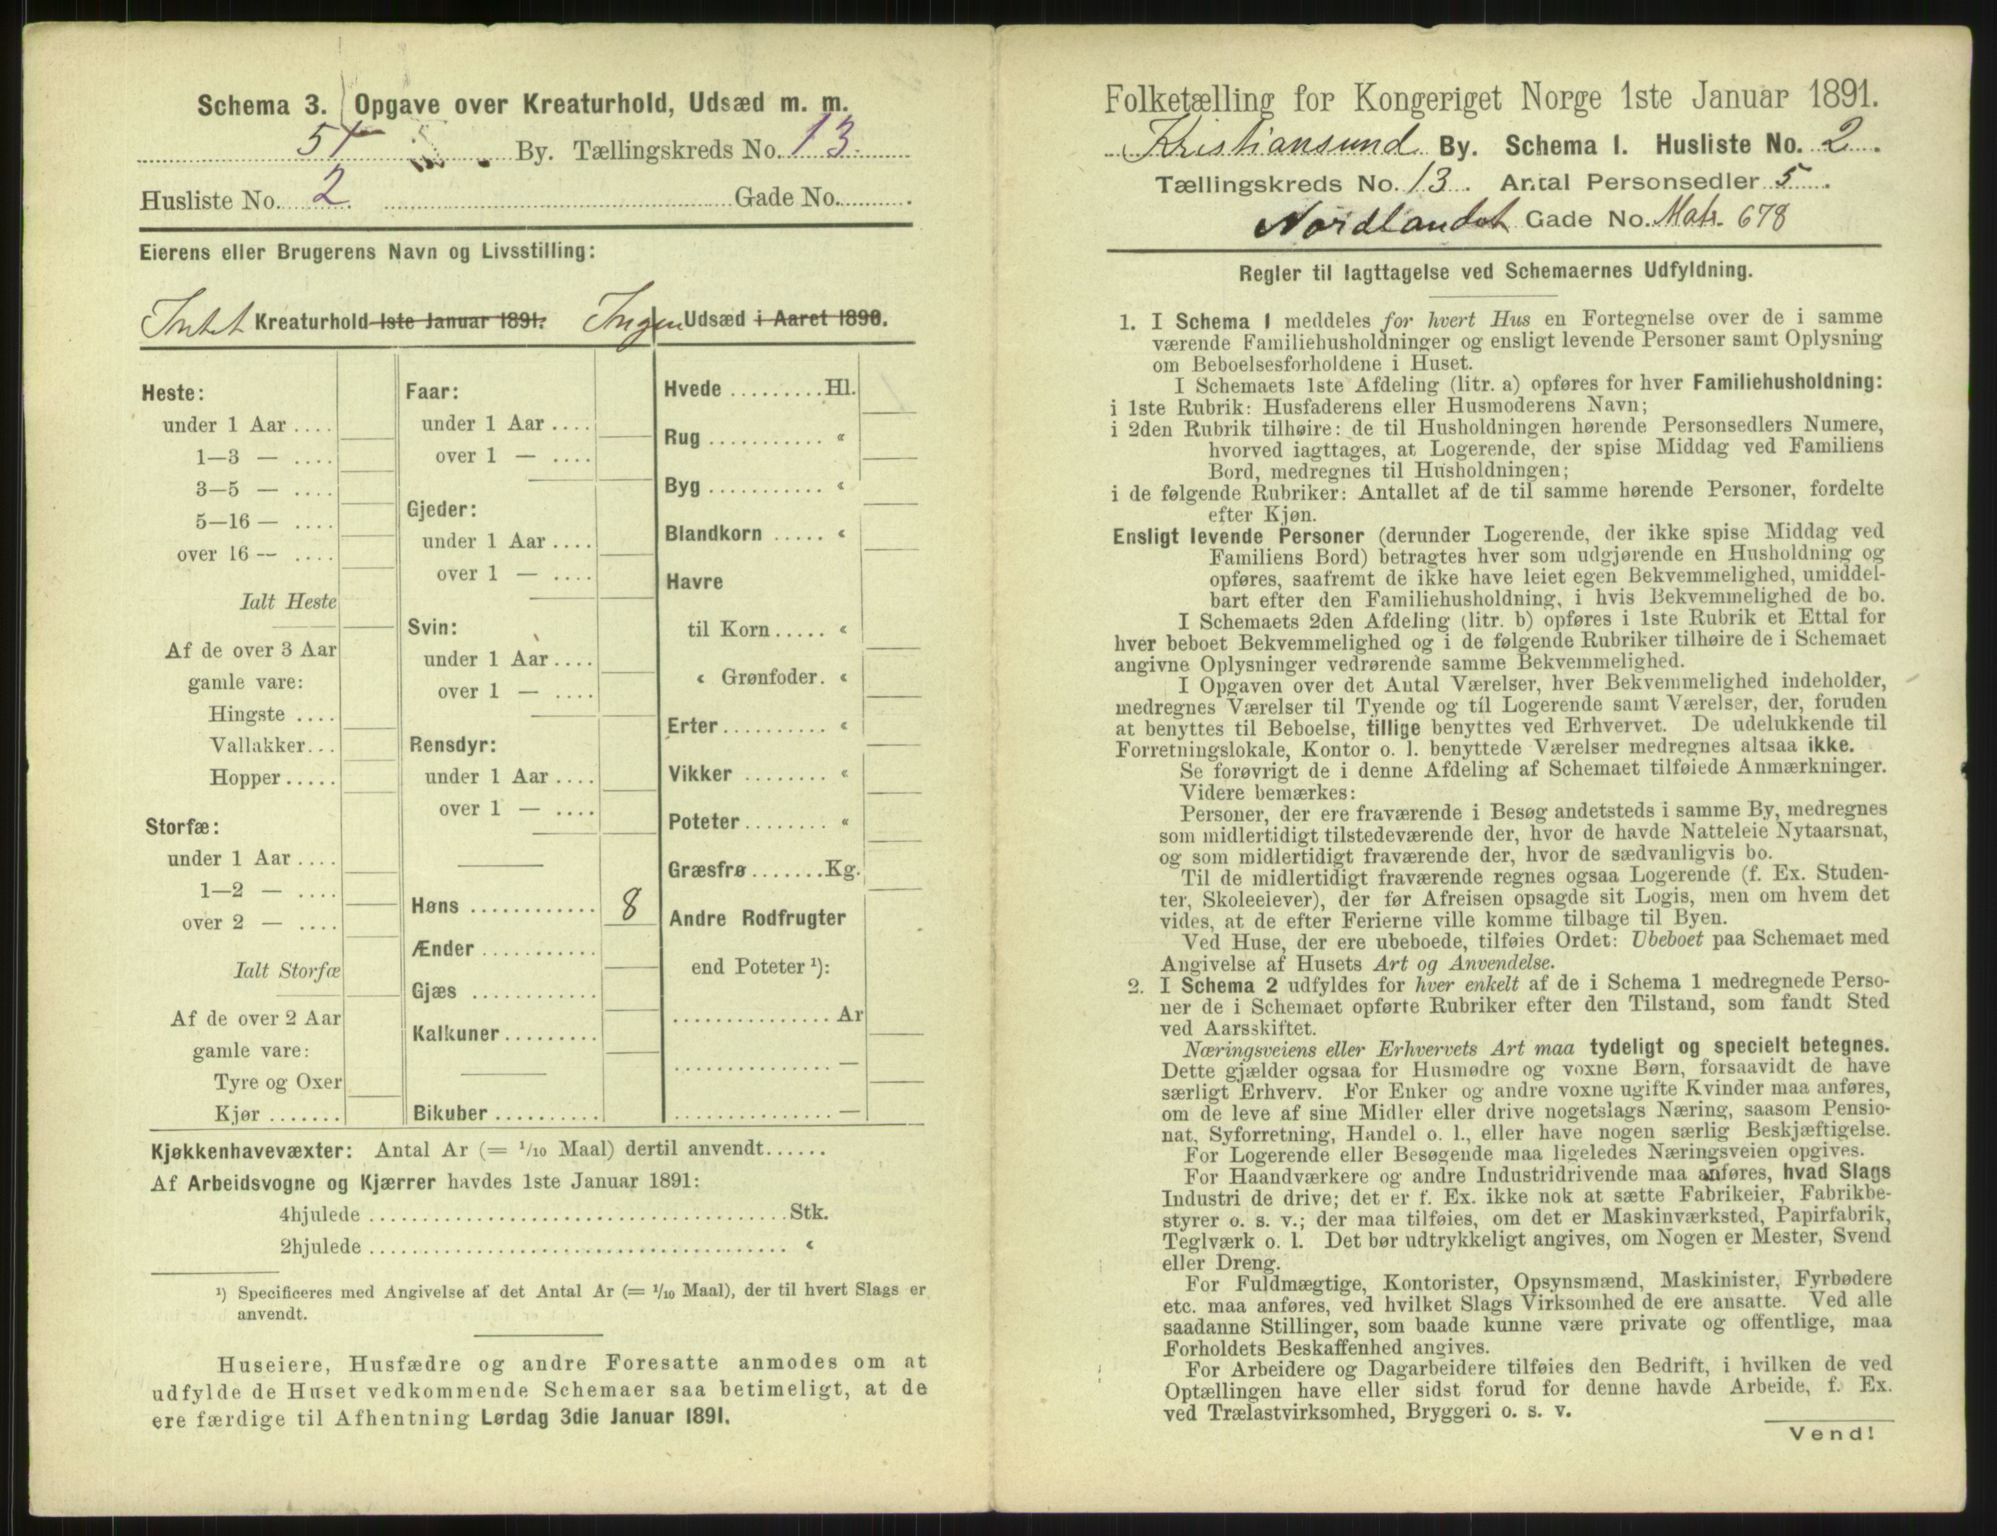 Schema 3. Opgave over Kreaturhold, Udsæd m. m.
By. Tællingskreds No. 13.
Husliste No. 2. Gade No.
Eierens eller Brugerens Navn og Livsstilling:
Intet Kreaturhold 1ste Januar 1891. Ingen Udsæd i Aaret 1890.
Heste:
under 1 Aar ....
1—3 — ....
3—5 — ....
5—16 — ....
over 16 — ....
Ialt Heste
Af de over 3 Aar
gamle vare:
Hingste ....
Vallakker...
Hopper .....
Storfæ:
under 1 Aar ....
1—2 — ....
over 2 — ....
Ialt Storfæ
Af de over 2 Aar
gamle vare:
Tyre og Oxer
Kjør .......
Faar:
under 1 Aar ....
over 1 — ....
Gjeder:
under 1 Aar ....
over 1 — ....
Svin:
under 1 Aar ....
over 1 — ....
Rensdyr:
under 1 Aar ....
over 1 — ....
Høns ............ 8
Ænder ...........
Gjæs ............
Kalkuner.........
Bikuber ..........
Hvede .........Hl.
Rug ........... «
Byg ........... «
Blandkorn ..... «
Havre
til Korn ..... «
« Grønfoder. «
Erter .......... «
Vikker ........ «
Poteter ........ «
Græsfrø .......Kg.
Andre Rodfrugter
end Poteter ¹):
............... Ar
............... —
............... —
Kjøkkenhavevæxter: Antal Ar (= 1/10 Maal) dertil anvendt......
Af Arbeidsvogne og Kjærrer havdes 1ste Januar 1891:
4hjulede ........................................Stk.
2hjulede ........................................ «
¹) Specificeres med Angivelse af det Antal Ar (= 1/10 Maal), der til hvert Slags er
anvendt.
Huseiere, Husfædre og andre Foresatte anmodes om at
udfylde de Huset vedkommende Schemaer saa betimeligt, at de
ere færdige til Afhentning Lørdag 3die Januar 1891.
Folketælling for Kongeriget Norge 1ste Januar 1891.
Kristiansund By. Schema I. Husliste No. 2.
Tællingskreds No. 13. Antal Personsedler 5.
Nordlandet Gade No. Matr. 678
Regler til Iagttagelse ved Schemaernes Udfyldning.
1. I Schema 1 meddeles for hvert Hus en Fortegnelse over de i samme
værende Familiehusholdninger og ensligt levende Personer samt Oplysning
om Beboelsesforholdene i Huset.
I Schemaets 1ste Afdeling (litr. a) opføres for hver Familiehusholdning:
i 1ste Rubrik: Husfaderens eller Husmoderens Navn;
i 2den Rubrik tilhøire: de til Husholdningen hørende Personsedlers Numere,
hvorved iagttages, at Logerende, der spise Middag ved Familiens
Bord, medregnes til Husholdningen;
i de følgende Rubriker: Antallet af de til samme hørende Personer, fordelte
efter Kjøn.
Ensligt levende Personer (derunder Logerende, der ikke spise Middag ved
Familiens Bord) betragtes hver som udgjørende en Husholdning og
opføres, saafremt de ikke have leiet egen Bekvemmelighed, umiddel-
bart efter den Familiehusholdning, i hvis Bekvemmelighed de bo.
I Schemaets 2den Afdeling (litr. b) opføres i 1ste Rubrik et Ettal for
hver beboet Bekvemmelighed og i de følgende Rubriker tilhøire de i Schemaet
angivne Oplysninger vedrørende samme Bekvemmelighed.
I Opgaven over det Antal Værelser, hver Bekvemmelighed indeholder,
medregnes Værelser til Tyende og til Logerende samt Værelser, der, foruden
at benyttes til Beboelse, tillige benyttes ved Erhvervet. De udelukkende til
Forretningslokale, Kontor o. l. benyttede Værelser medregnes altsaa ikke.
Se forøvrigt de i denne Afdeling af Schemaet tilføiede Anmærkninger.
Videre bemærkes:
Personer, der ere fraværende i Besøg andetsteds i samme By, medregnes
som midlertidigt tilstedeværende der, hvor de havde Natteleie Nytaarsnat,
og som midlertidigt fraværende der, hvor de sædvanligvis bo.
Til de midlertidigt fraværende regnes ogsaa Logerende (f. Ex. Studen-
ter, Skoleelever), der før Afreisen opsagde sit Logis, men om hvem det
vides, at de efter Ferierne ville komme tilbage til Byen.
Ved Huse, der ere ubeboede, tilføies Ordet: Ubeboet paa Schemaet med
Angivelse af Husets Art og Anvendelse.
2. I Schema 2 udfyldes for hver enkelt af de i Schema 1 medregnede Perso-
ner de i Schemaet opførte Rubriker efter den Tilstand, som fandt Sted
ved Aarsskiftet.
Næringsveiens eller Erhvervets Art maa tydeligt og specielt betegnes.
Dette gjælder ogsaa for Husmødre og voxne Børn, forsaavidt de have
særligt Erhverv. For Enker og andre voxne ugifte Kvinder maa anføres,
om de leve af sine Midler eller drive nogetslags Næring, saasom Pensio-
nat, Syforretning, Handel o. l., eller have nogen særlig Beskjæftigelse.
For Logerende eller Besøgende maa ligeledes Næringsveien opgives.
For Haandværkere og andre Industridrivende maa anføres, hvad Slags
Industri de drive; det er f. Ex. ikke nok at sætte Fabrikeier, Fabrikbe-
styrer o. s. v.; der maa tilføies, om det er Maskinværksted, Papirfabrik,
Teglværk o. l. Det bør udtrykkeligt angives, om Nogen er Mester, Svend
eller Dreng.
For Fuldmægtige, Kontorister, Opsynsmænd, Maskinister, Fyrbødere
etc. maa anføres, ved hvilket Slags Virksomhed de ere ansatte. Ved alle
saadanne Stillinger, som baade kunne være private og offentlige, maa
Forholdets Beskaffenhed angives.
For Arbeidere og Dagarbeidere tilføies den Bedrift, i hvilken de ved
Optællingen have eller sidst forud for denne havde Arbeide, f. Ex.
ved Trælastvirksomhed, Bryggeri o. s. v.
Vend!